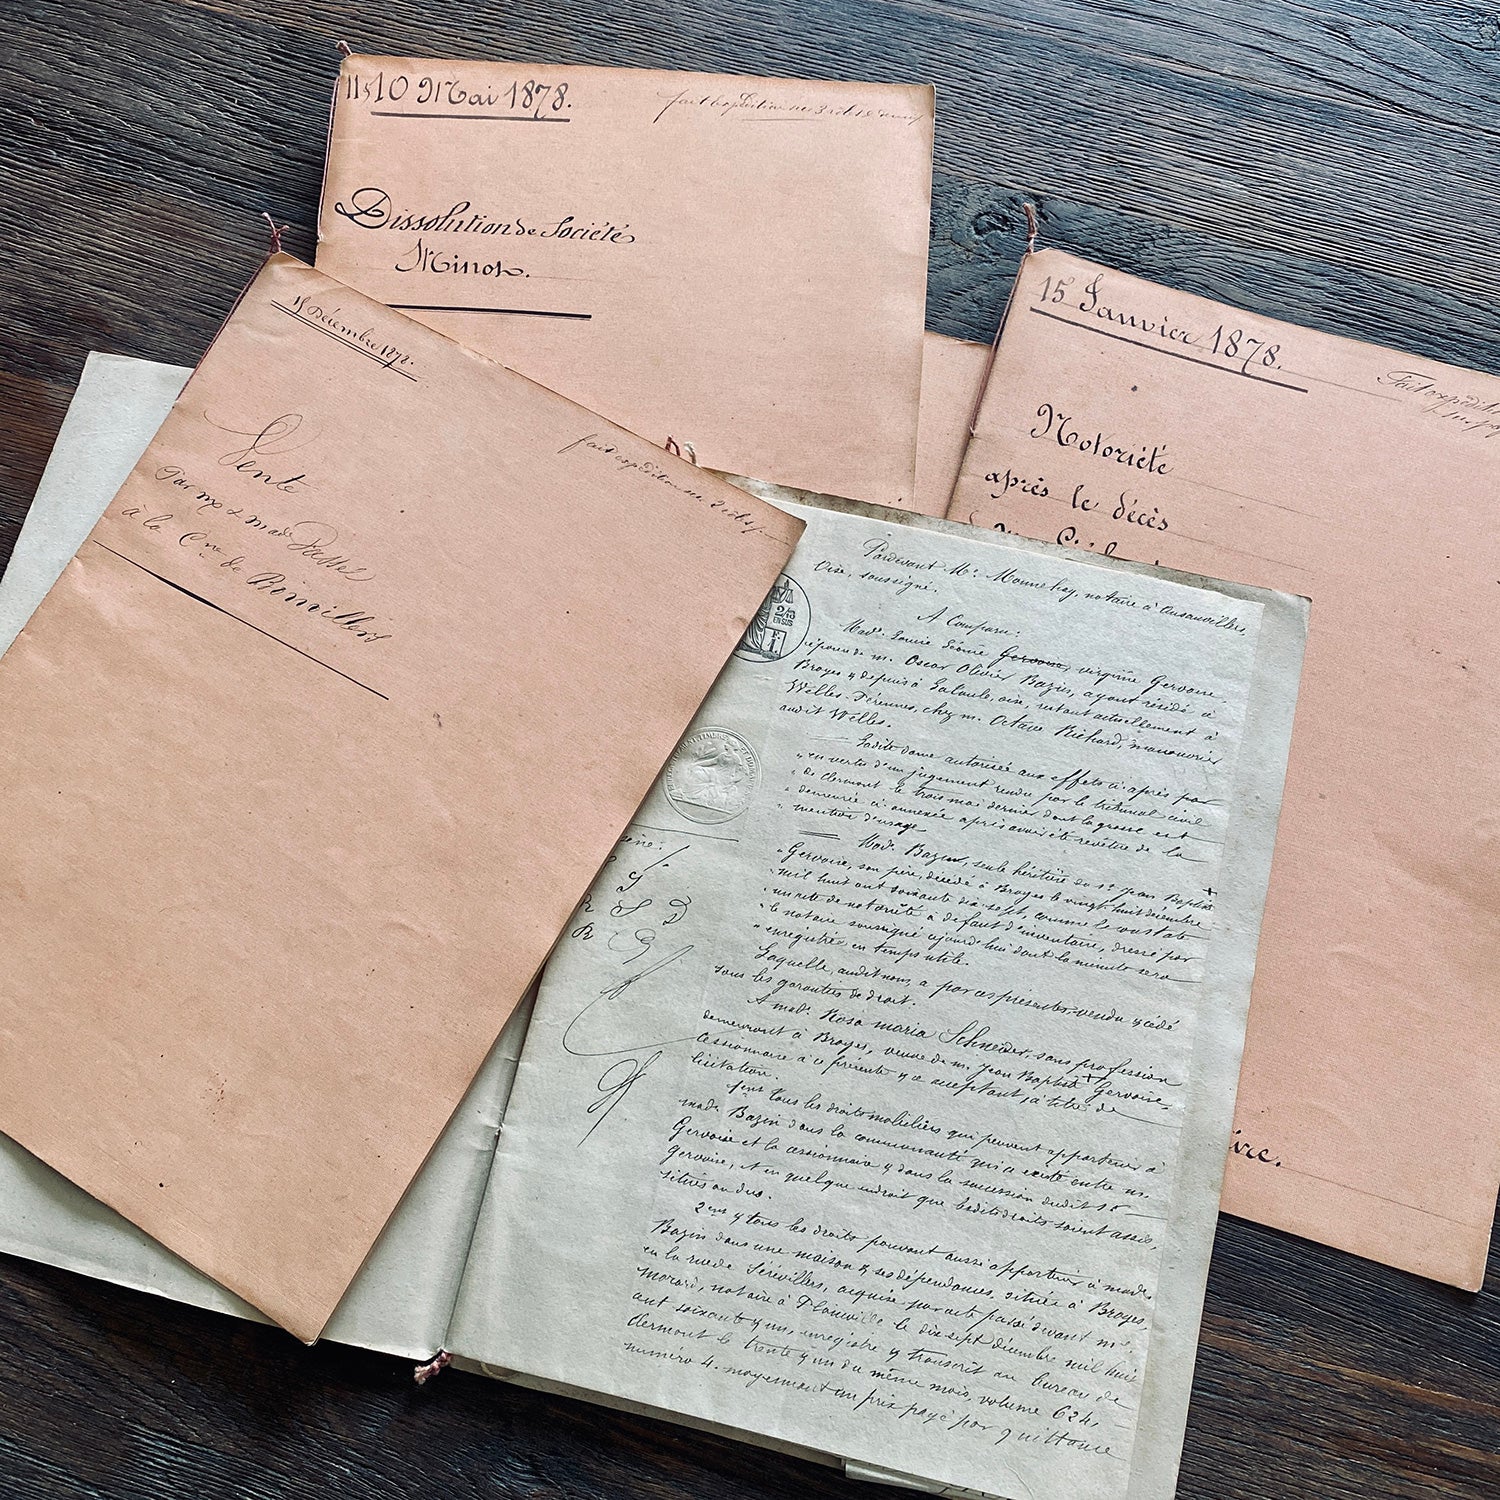 11 & 10 Mai 1878.
fait expédition
Dissolution de Société
Minot.
15 Janvier 1878.
Fait expédition
Notoriété
après le décès
Décembre 1878.
fait expédition
Vente
Par mr & made
à la Cne de Bonvillers
Pardevant Me. Monnehay, notaire à Ansauvillers,
Oise, soussigné.
A Comparu:
Made. Louise Gervoise, virginie Gervoise,
épouse de m. Oscar Olivier Bazin, ayant résidé à
Broyes & depuis à oise, restant actuellement à
Welles-Pérennes, chez m. Octave Richard, manouvrier
audit Welles.
Ladite dame autorisée aux effets ci-après par
en vertu d'un jugement rendu par le tribunal civil
de Clermont le trois mai dernier dont la grosse est
demeurée ci-annexée après avoir été revêtue de la
mention d'usage
Made. Bazin, seule héritière du sr. Jean Baptiste
Gervoise, son père, décédé à Broyes le vingt huit décembre
mil huit cent soixante dix-sept, comme le constate
un acte de notoriété à defaut d'inventaire, dressé par
le notaire soussigné ajourd'hui dont la minute sera
enregistrée en temps utile.
Laquelle, audit nom, a par ces présentes, vendu & cédé
sous les garanties de droit.
A made. Rosa maria Schneider, sans profession
demeurant à Broyes, veuve de m. Jean Baptiste Gervoise
Cessionnaire à ce présente & ce acceptant, à titre de
licitation.
1ent tous les droits mobiliers qui peuvent appartenir à
made. Bazin dans la communauté qui a existé entre m.
Gervoise et la cessionnaire & dans la succession dudit sr
Gervoise, et en quelque endroit que lesdits droits soient assis,
situés ou dus.
2ent & tous les droits pouvant aussi appartenir à made.
Bazin dans une maison & ses dépendances, située à Broyes,
en la rue de Sérévillers, acquise par acte passé devant me.
Morard, notaire à Plainville le dix sept décembre mil huit
cent soixante & un, enregistré & transcrit au bureau de
Clermont le trente & un du même mois, volume 624,
numéro 4. moyennant un prix payé par quittance
2/10
EN SUS
F.
1.